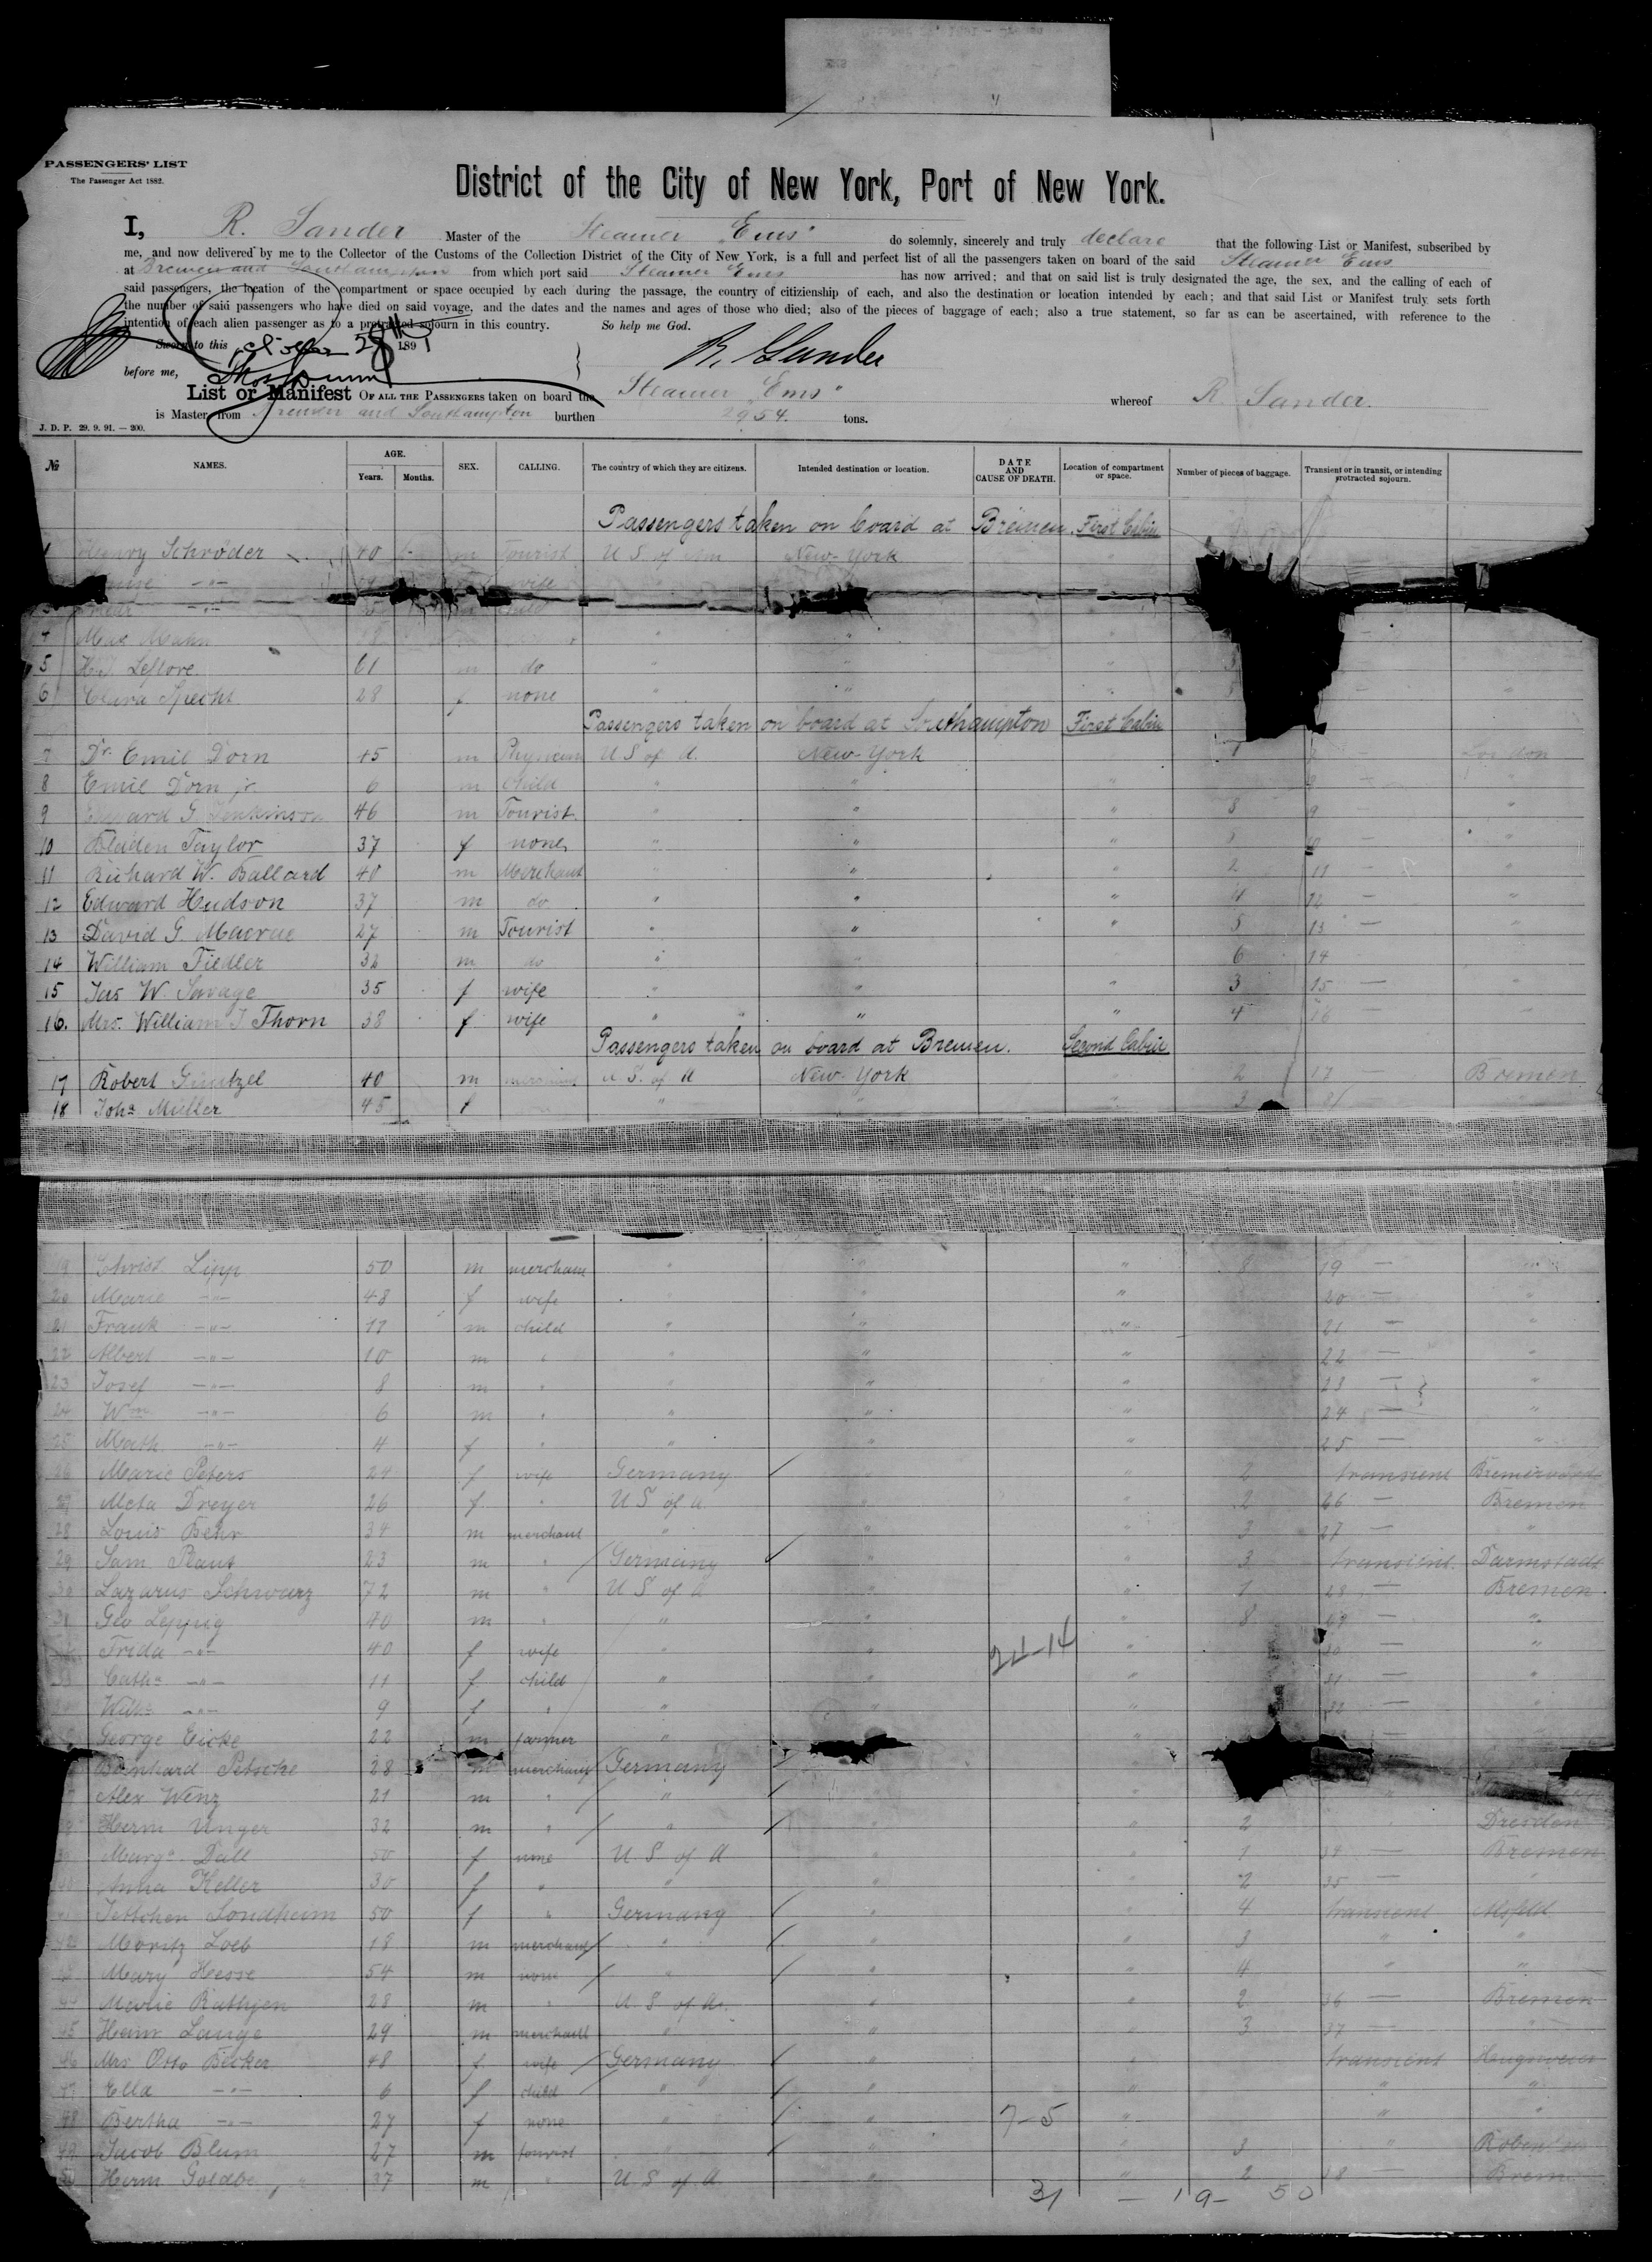 PASSENGERS' LIST
The Passenger Act 1882.
District of the City of New York, Port of New York.
I, R. Sander Master of the Steamer „Ems" do solemnly, sincerely and truly declare that the following List or Manifest, subscribed by
me, and now delivered by me to the Collector of the Customs of the Collection District of the City of New York, is a full and perfect list of all the passengers taken on board of the said Steamer Ems
at Bremen and Southampton from which port said Steamer Ems has now arrived; and that on said list is truly designated the age, the sex, and the calling of each of
said passengers, the location of the compartment or space occupied by each during the passage, the country of citizienship of each, and also the destination or location intended by each; and that said List or Manifest truly sets forth
the number of said passengers who have died on said voyage, and the dates and the names and ages of those who died; also of the pieces of baggage of each; also a true statement, so far as can be ascertained, with reference to the
intention of each alien passenger as to a protracted sojourn in this country. So help me God.
Sworn to this October 28th 1891
before me, R. Sander
List or Manifest OF ALL THE PASSENGERS taken on board the Steamer „Ems" whereof R. Sander.
is Master, from Bremen and Southampton burthen 2954. tons.
J. D. P. 29. 9. 91. — 200.
№ NAMES. AGE. Years. Months. SEX. CALLING. The country of which they are citizens. Intended destination or location. DATE AND CAUSE OF DEATH. Location of compartment or space. Number of pieces of baggage. Transient or in transit, or intending protracted sojourn.
Passengers taken on board at Bremen. First Cabin
1 Henry Schröder 40 m Tourist U S of Am New-York
wife
child
4 Max Mann
5 Leflore 61 m do
6 Clara Specht 28 f none
Passengers taken on board at Southampton First Cabin
7 Dr. Emil Dorn 45 m Physician U S of A. New-York London
8 Emil Dorn jr 6 m child "
9 G Jenkinson 46 m Tourist " " " 8 9 "
10 Taylor 37 f none " " " 10 "
11 Richard W. Ballard 40 m Merchant " " " 2 11 — "
12 Edward Hudson 37 m do " " " 4 12 — "
13 David G. Macrae 27 m Tourist " " " 5 13 — "
14 William Fiedler 32 m do " 6 14 —
15 Jas W. Savage 35 f wife " " " 3 15 — "
16. Mrs. William J. Thorn 38 f wife " " " 4 16 — "
Passengers taken on board at Bremen. Second Cabin
17 Robert Güntzel 40 m merchant U. S. of A New-York 2 17 — Bremen
18 Joha Müller 45 f " 3
19 Christ Lipp 50 m merchant " " " 8 19 — "
20 Marie —"— 48 f wife " " " 20 — "
21 Frank —"— 11 m child " " " 21 — "
22 Albert —"— 10 m " " " " 22 — "
23 Josef —"— 8 m " " " " 23 — "
24 Wm —"— 6 m " " " " 24 — "
25 Math —"— 4 f " " " " 25 — "
26 Marie Peters 24 f wife Germany " 2 transient
27 Meta Dreyer 26 f " U S of A. " " 2 26 — Bremen
28 Louis Behr 34 m merchant " " " 3 27 — "
29 Sam Plaut 23 m " Germany " " 3 transient Darmstadt
30 Lazarus Schwarz 72 m " U S of A " " 1 28 — Bremen
31 Geo Leppig 40 m " " " " 8 29 — "
Frida —"— 40 f wife " " 21-14 " 30 — "
33 Catha —"— 11 f child " " 31 — "
Wilha —"— 9 f " " " " 32 — "
George Eicke 22 m farmer " "
Bernhard Petsche 28 m merchant Germany
Alex Wenz 21 m " " " "
Herm Unger 32 m " " " " 2 Dresden
Marga Dall 50 f none U S of A " 1 34 — Bremen
Anna Keller 30 f " " " " 2 35 — "
Jettchen Sondheim 50 f " Germany " " 4 transient Alsfeld
42 Moritz Loeb 18 m merchant " " " 3 " "
Mary Hesse 54 m none " " " 4 " "
44 Marie Rathjen 28 m " U. S. of A. " " 2 36 — Bremen
45 Heinr Lange 29 m merchant " " " 3 37 — "
46 Mrs Otto Becker 48 f wife Germany " " transient
47 Ella —"— 6 f child " " " " "
48 Bertha —"— 27 f none " " 7-5 " " "
49 Jacob Blum 27 m tourist " " " 3 "
50 Herm 37 m " U. S. of A. " " 2 38 —
31 — 19 — 50